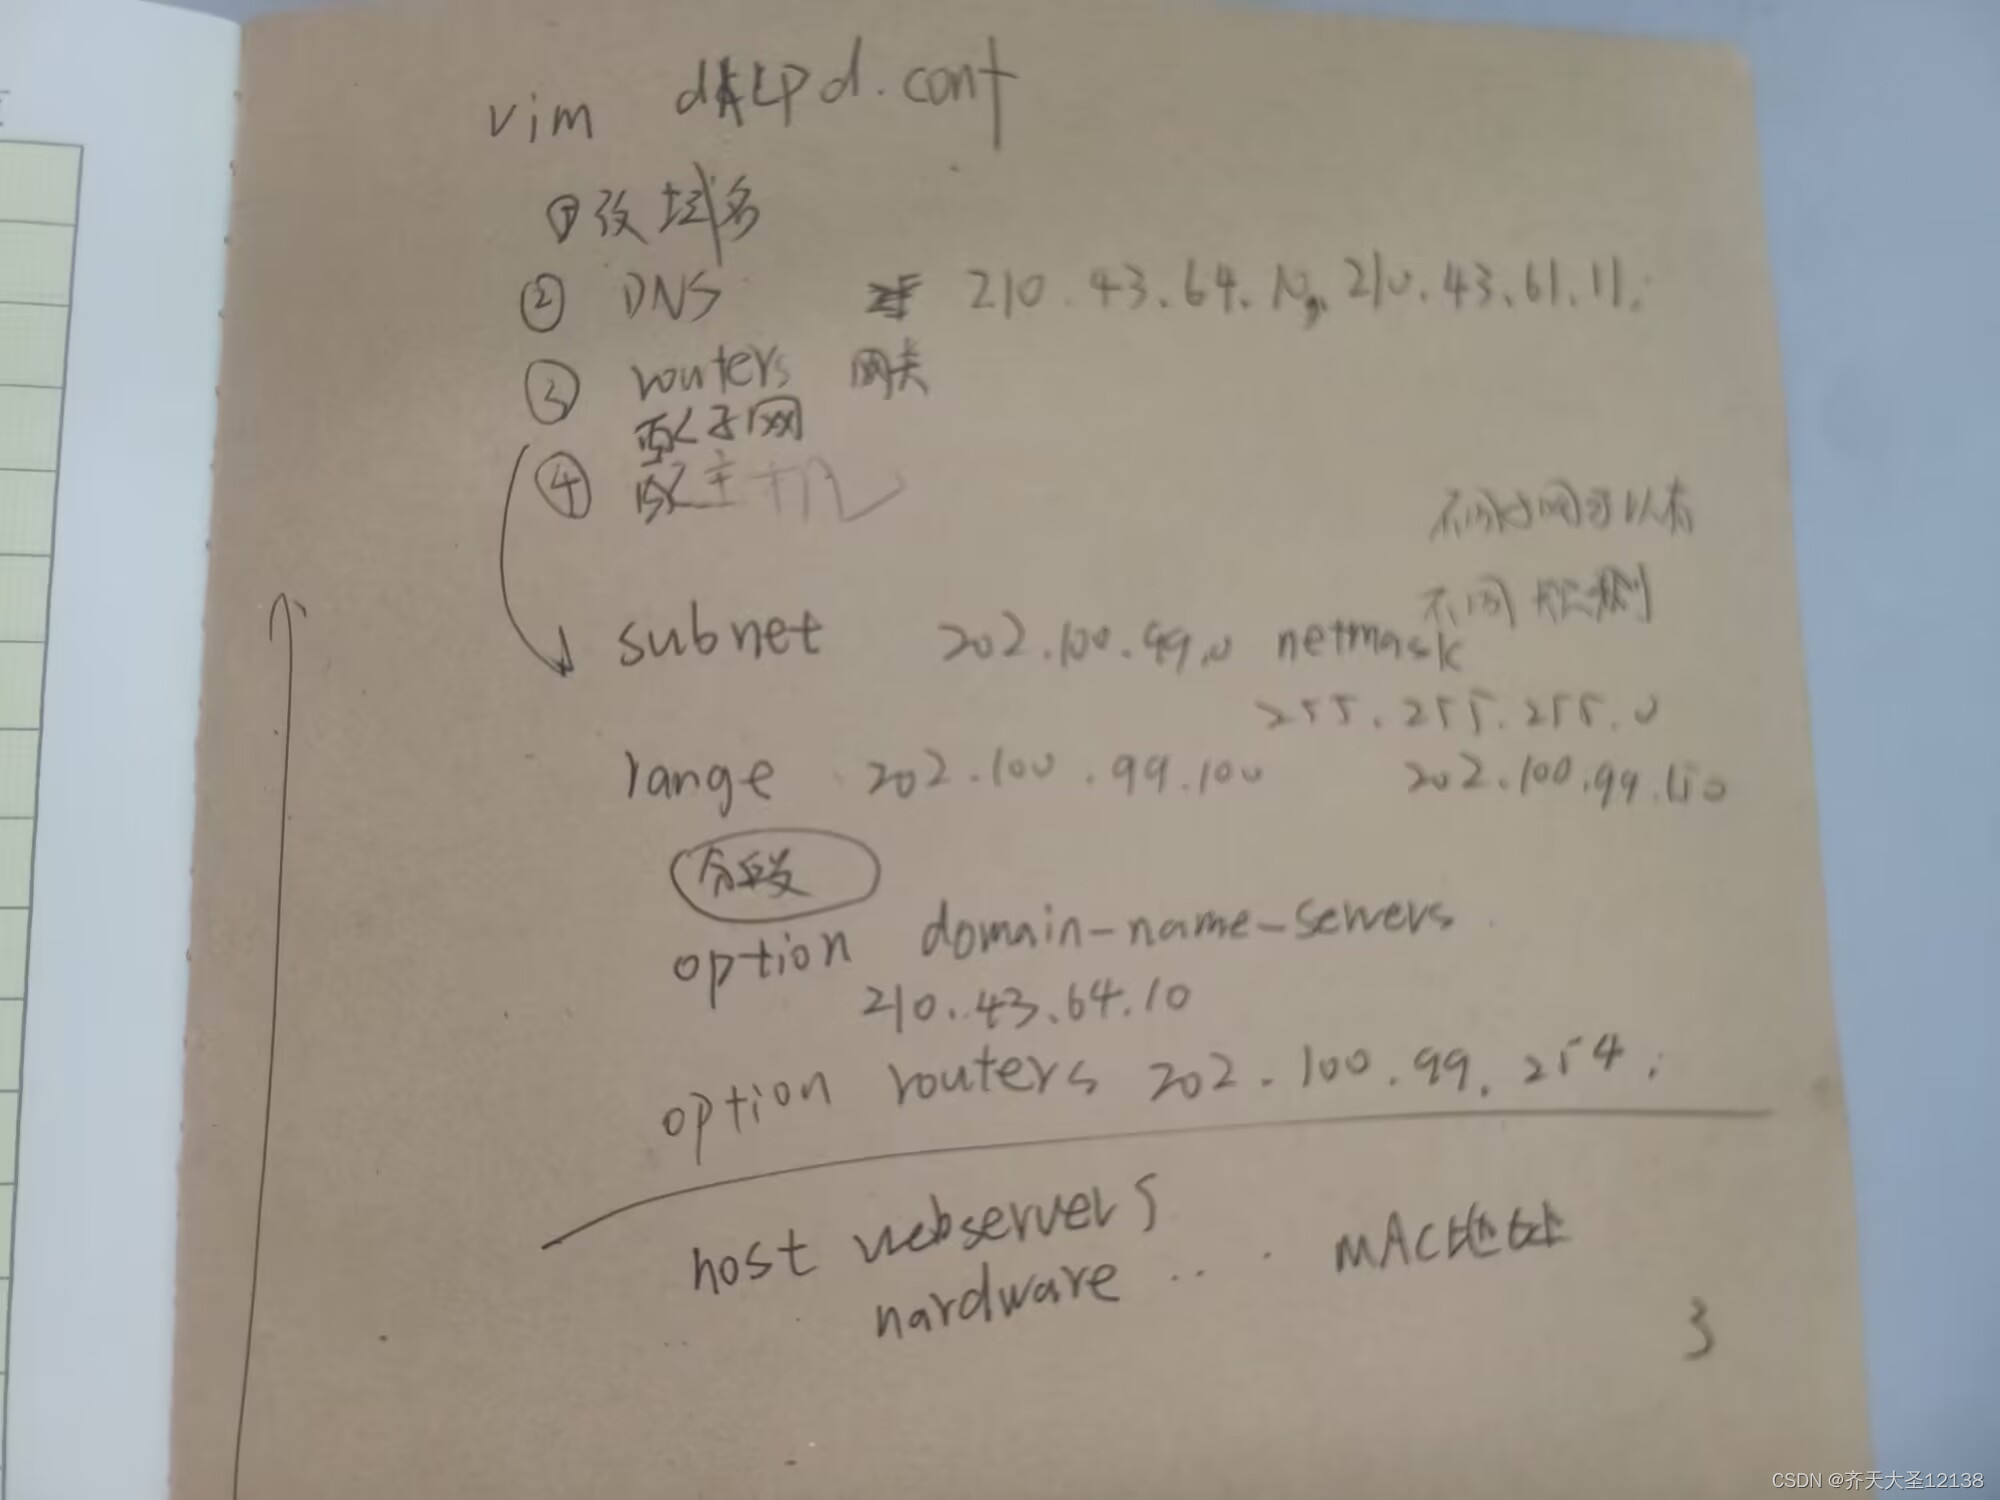 vim dhcpd.conf
① 改域名
② DNS 210.43.64.10, 210.43.61.11;
③ routers 网关
改子网
④ 改主机
不同子网可以有
不同规则
subnet 202.100.99.0 netmask
255.255.255.0
range 202.100.99.100 202.100.99.110
分段
option domain-name-servers
210.43.64.10
option routers 202.100.99.254;
host webservers
hardware ... MAC地址
3
CSDN @齐天大圣12138